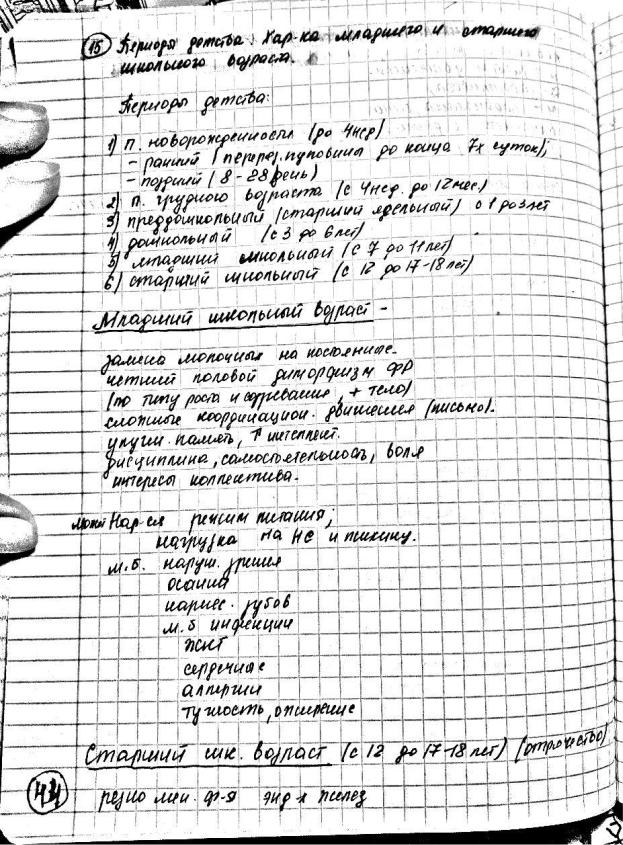 15 Периоды детства. Хар-ка младшего и старшего
школьного возраста.
Периоды детства:
1) п. новорожденности (до 4 нед)
- ранний (перерез. пуповины до конца 7х суток);
- поздний (8-28 день)
2) п. грудного возраста (с 4 нед. до 12 мес.)
3) преддошкольный (старший ясельный) с 1 до 3 лет
4) дошкольный (с 3 до 6 лет)
5) младший школьный (с 7 до 11 лет)
6) старший школьный (с 12 до 17-18 лет)
Младший школьный возраст -
замена молочных на постоянные.
четкий половой диморфизм ФР
(по типу роста и созревания, + тело)
сложные координацион. движения (письмо).
улучш. память, ↑ интеллект.
дисциплина, самостоятельность, воля
интересы коллектива.
может Нар-ся режим питания;
нагрузка на НС и психику.
м.б. наруш. зрения
осанки
кариес. зубов
м.б инфекции
ЖКТ
сердечные
аллергии
тучность, ожирение
Старший шк. возраст (с 12 до 17-18 лет) (отрочество)
44 резко мен. ф-я энд-х желез